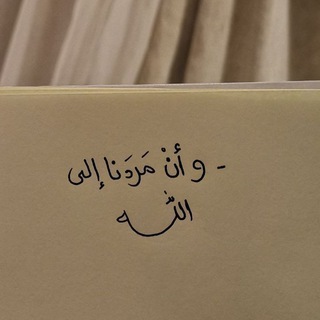 - وأنْ مَردَنا إلى
الله